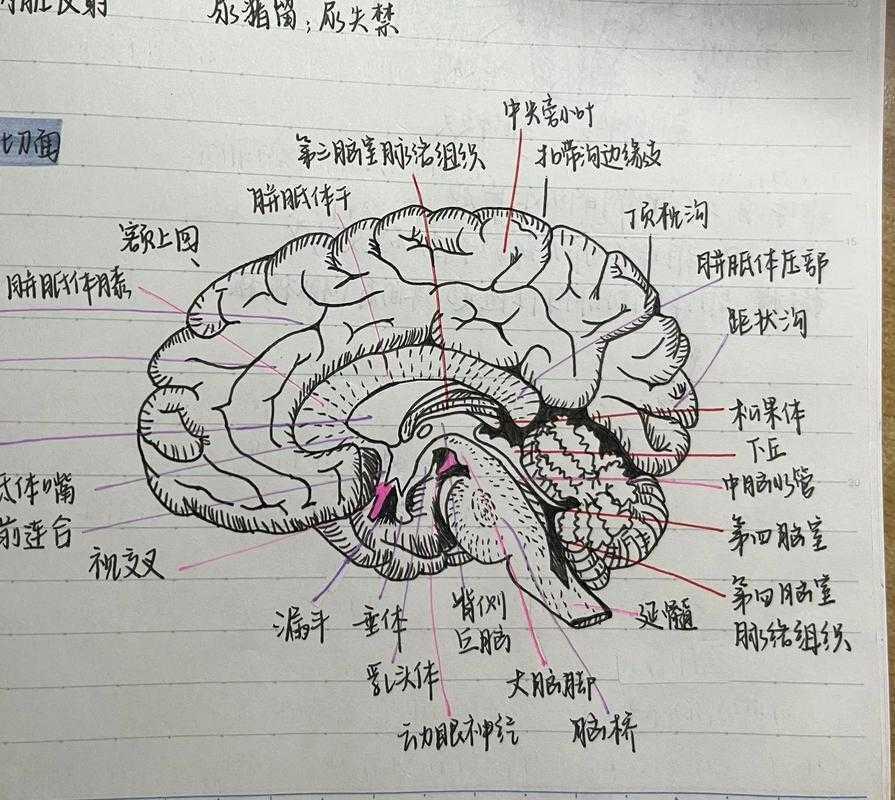 尿潴留；尿失禁
切面
中央旁小叶
第三脑室脉络组织
扣带沟边缘支
胼胝体干
顶枕沟
额上回
胼胝体压部
胼胝体膝
距状沟
松果体
下丘
中脑水管
体嘴
前连合
第四脑室
视交叉
第四脑室
脉络组织
漏斗
垂体
背侧
丘脑
延髓
乳头体
大脑脚
动眼神经
脑桥